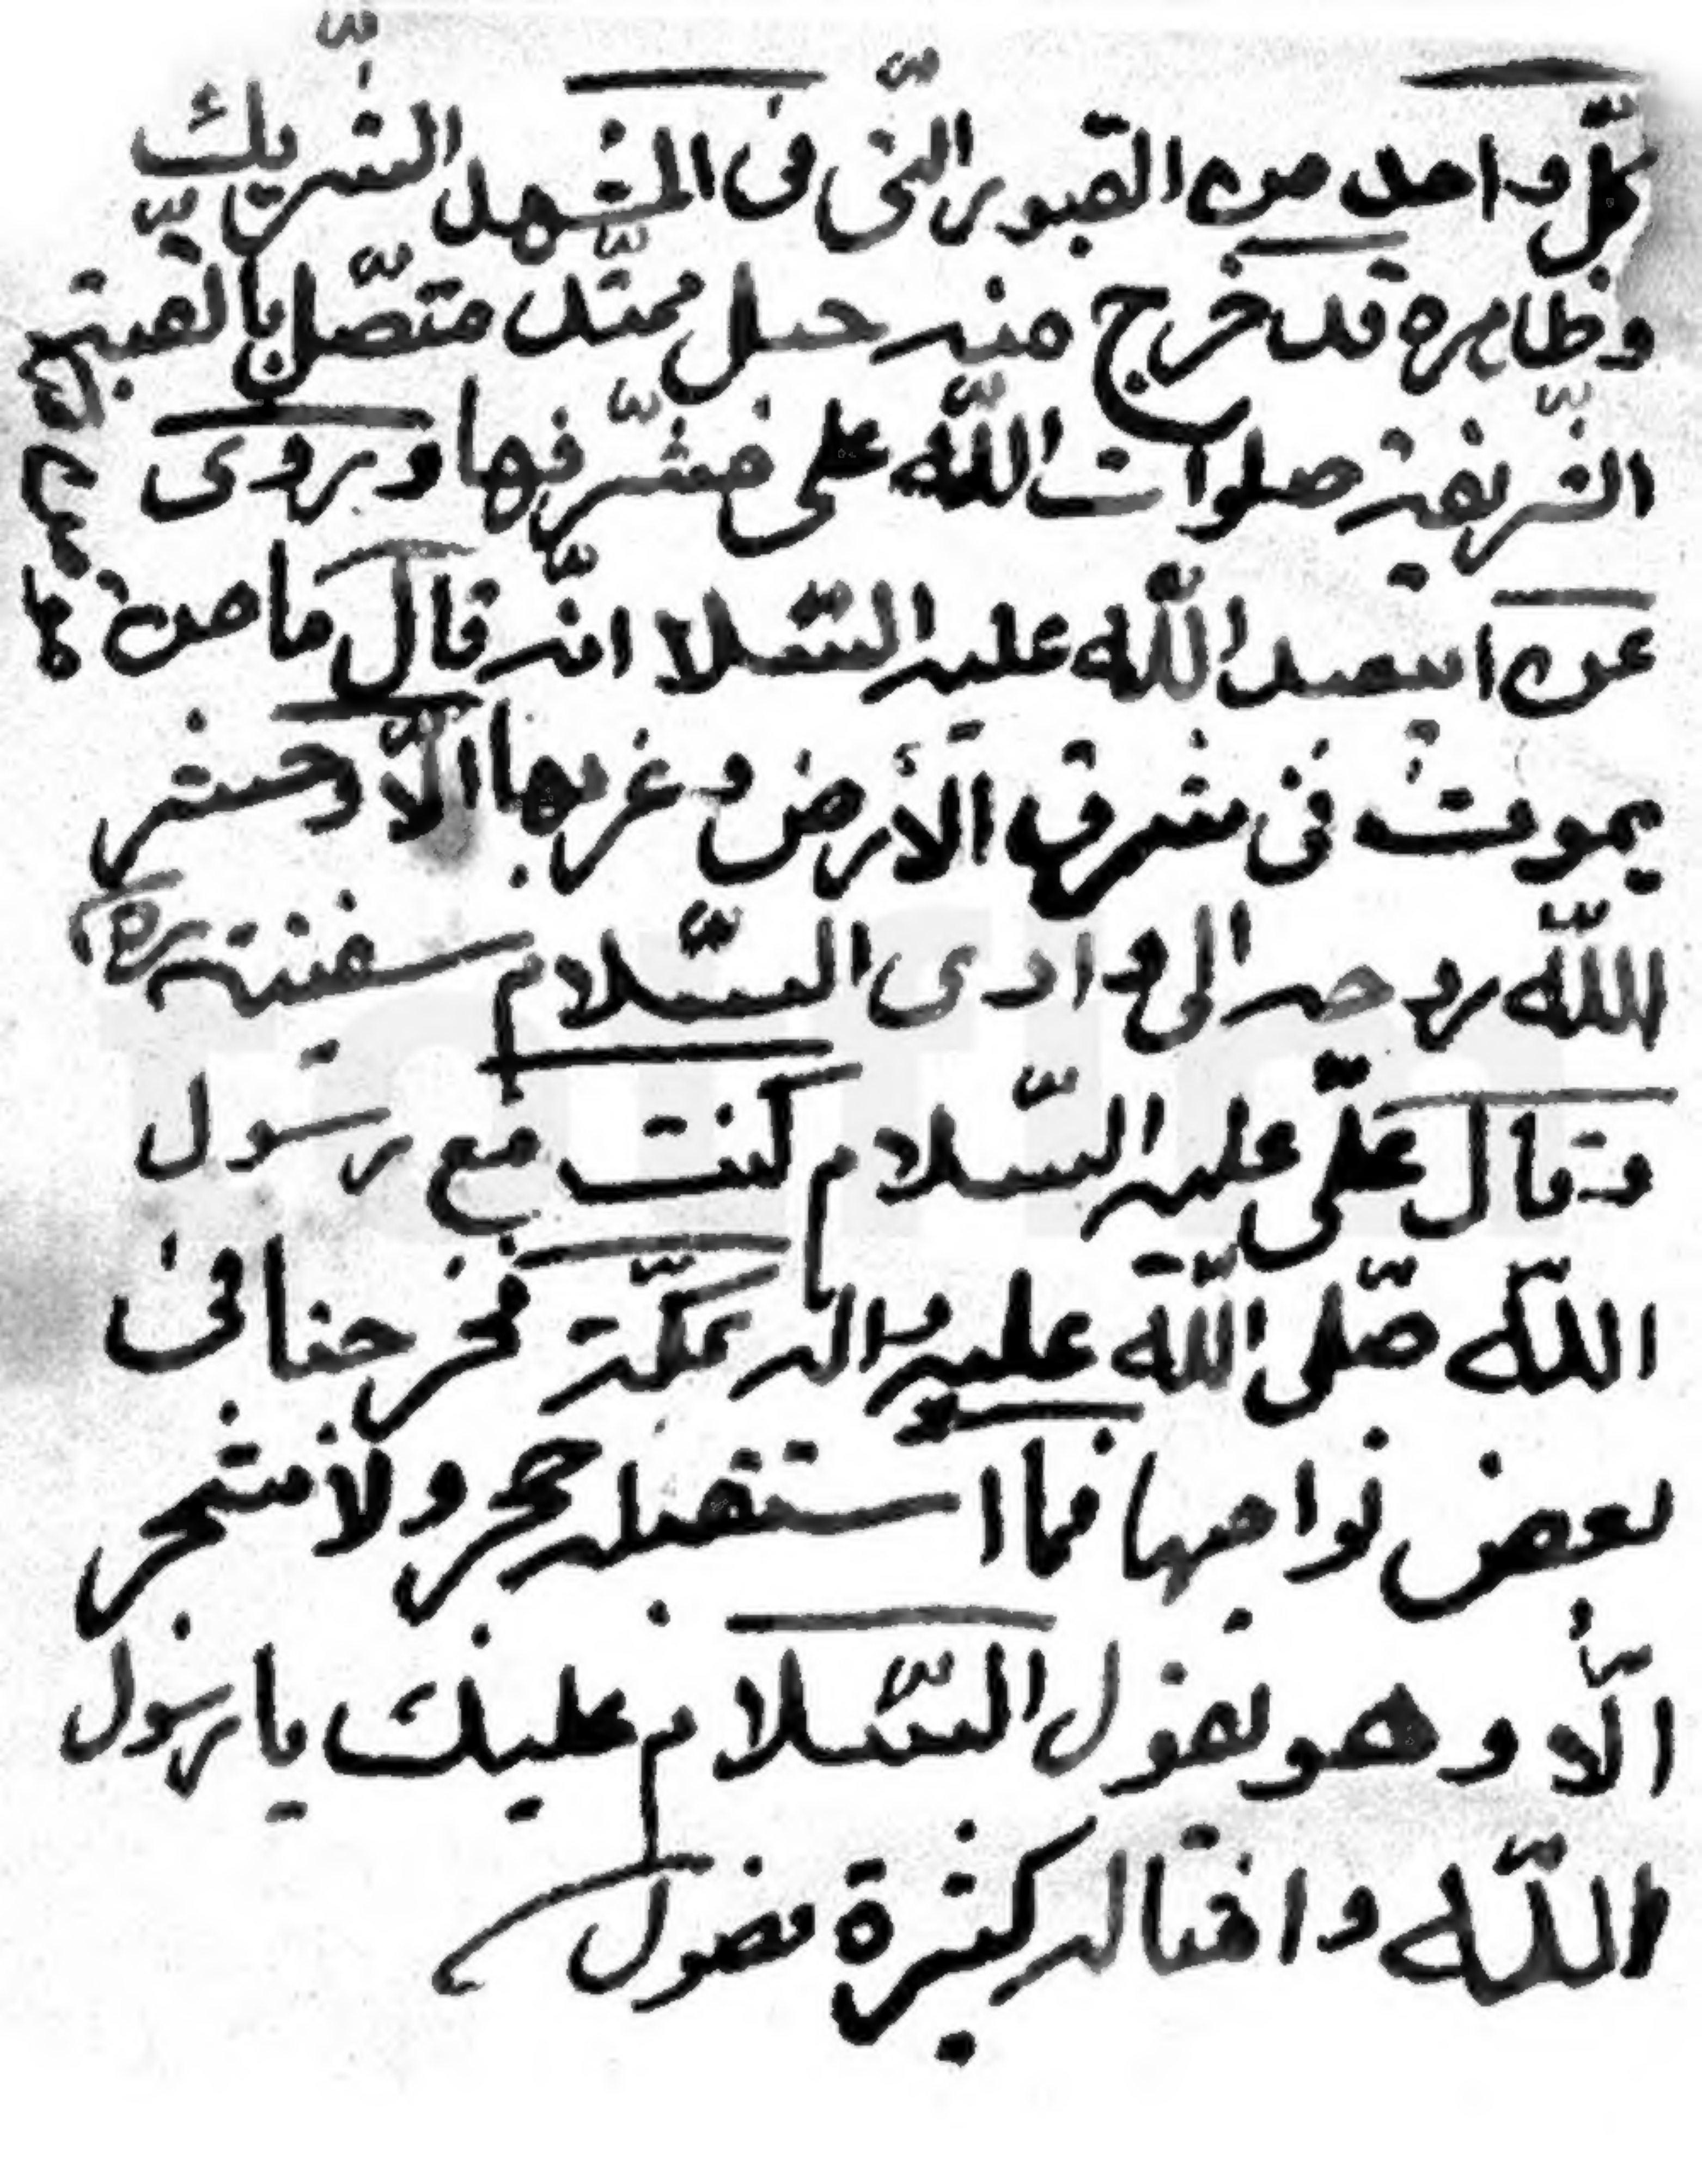 كلّ واحد من القبور التّي فى المشهد الشّريف
وظاهره قد خرج منه حبل ممتّد متصّل بالقبة
الشّريفة صلوات اللّه على مشّرفها ويروى
عن ابيعبد اللّه عليه السّلا انّه قال ما من
يموت فى شرق الأرض وغربها الّا وحشر
اللّه روحه الى وادى السّلام سفينة
وقال علّى عليه السّلام كنت مع رسول
اللّه صّلى اللّه عليه واله بمكّة فخرجنا فى
بعض نواحيها فما استقبله حجر ولا شجر
الّا وهو يقول السّلام عليك يا رسول
اللّه وامثاله كثيرة فصول